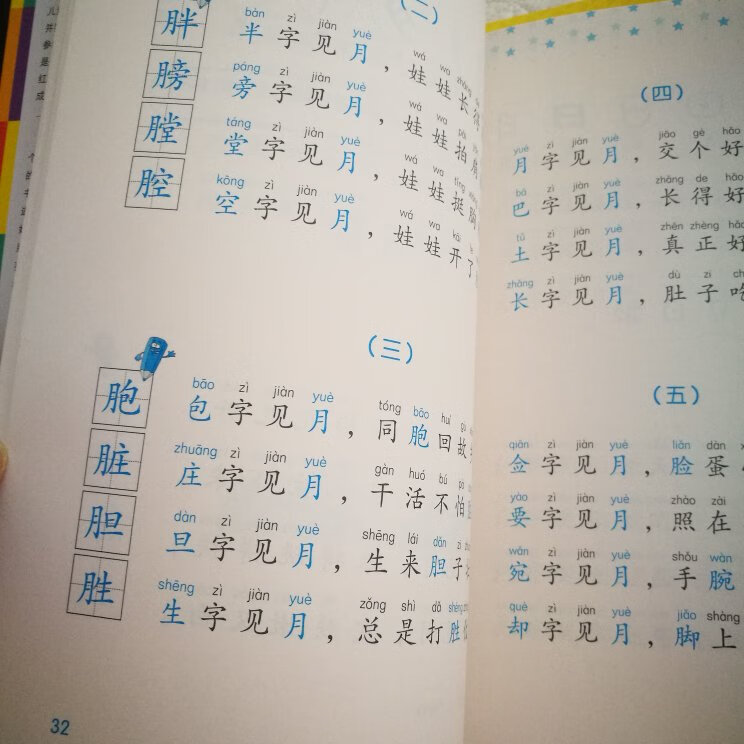 （二）
胖
bàn zì jiàn yuè wá wa zhǎng
半字见月，娃娃长得
膀
páng zì jiàn yuè wá wa pāi
旁字见月，娃娃拍
膛
táng zì jiàn yuè wá wa tǐng
堂字见月，娃娃挺胸
腔
kōng zì jiàn yuè wá wa kāi
空字见月，娃娃开了
（三）
胞
bāo zì jiàn yuè tóng bāo huí gù
包字见月，同胞回故
脏
zhuāng zì jiàn yuè gàn huó bú pà
庄字见月，干活不怕
胆
dàn zì jiàn yuè shēng lái dǎn zi
旦字见月，生来胆子
胜
shēng zì jiàn yuè zǒng shì dǎ shèng
生字见月，总是打胜
32
（四）
yuè zì jiàn yuè jiāo gè hǎo
月字见月，交个好
bā zì jiàn yuè zhǎng de hǎo
巴字见月，长得好
tǔ zì jiàn yuè zhēn zhèng hǎo
土字见月，真正好
zhǎng zì jiàn yuè dù zi ch
长字见月，肚子吃
（五）
qiān zì jiàn yuè liǎn dàn
佥字见月，脸蛋
yào zì jiàn yuè zhào zài
要字见月，照在
wǎn zì jiàn yuè shǒu wàn
宛字见月，手腕
què zì jiàn yuè jiǎo shàng
却字见月，脚上